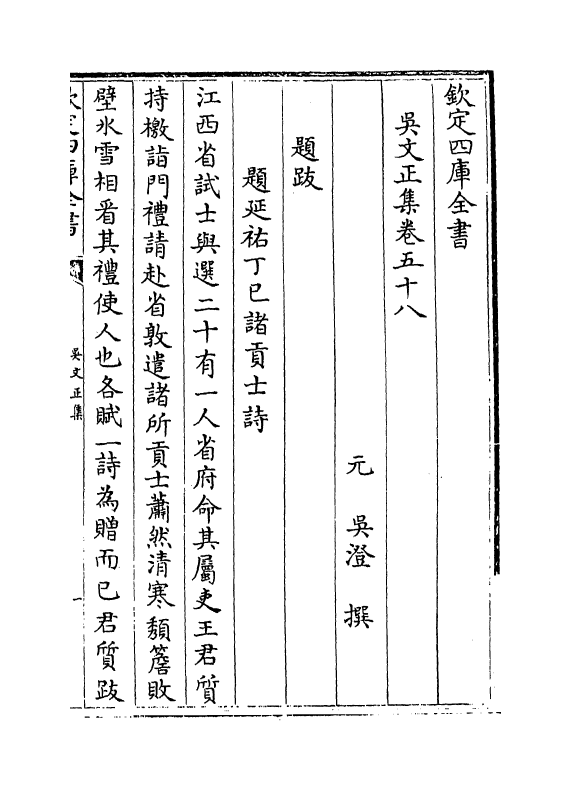 欽定四庫全書
吳文正集卷五十八
元 吳澄 撰
題跋
題延祐丁巳諸貢士詩
江西省試士與選二十有一人省府命其屬吏王君質
持檄詣門禮請赴省敦遣諸所貢士蕭然清寒頽簷敗
壁氷雪相看其禮使人也各賦一詩為贈而已君質跋
欽定四庫全書
吳文正集
一